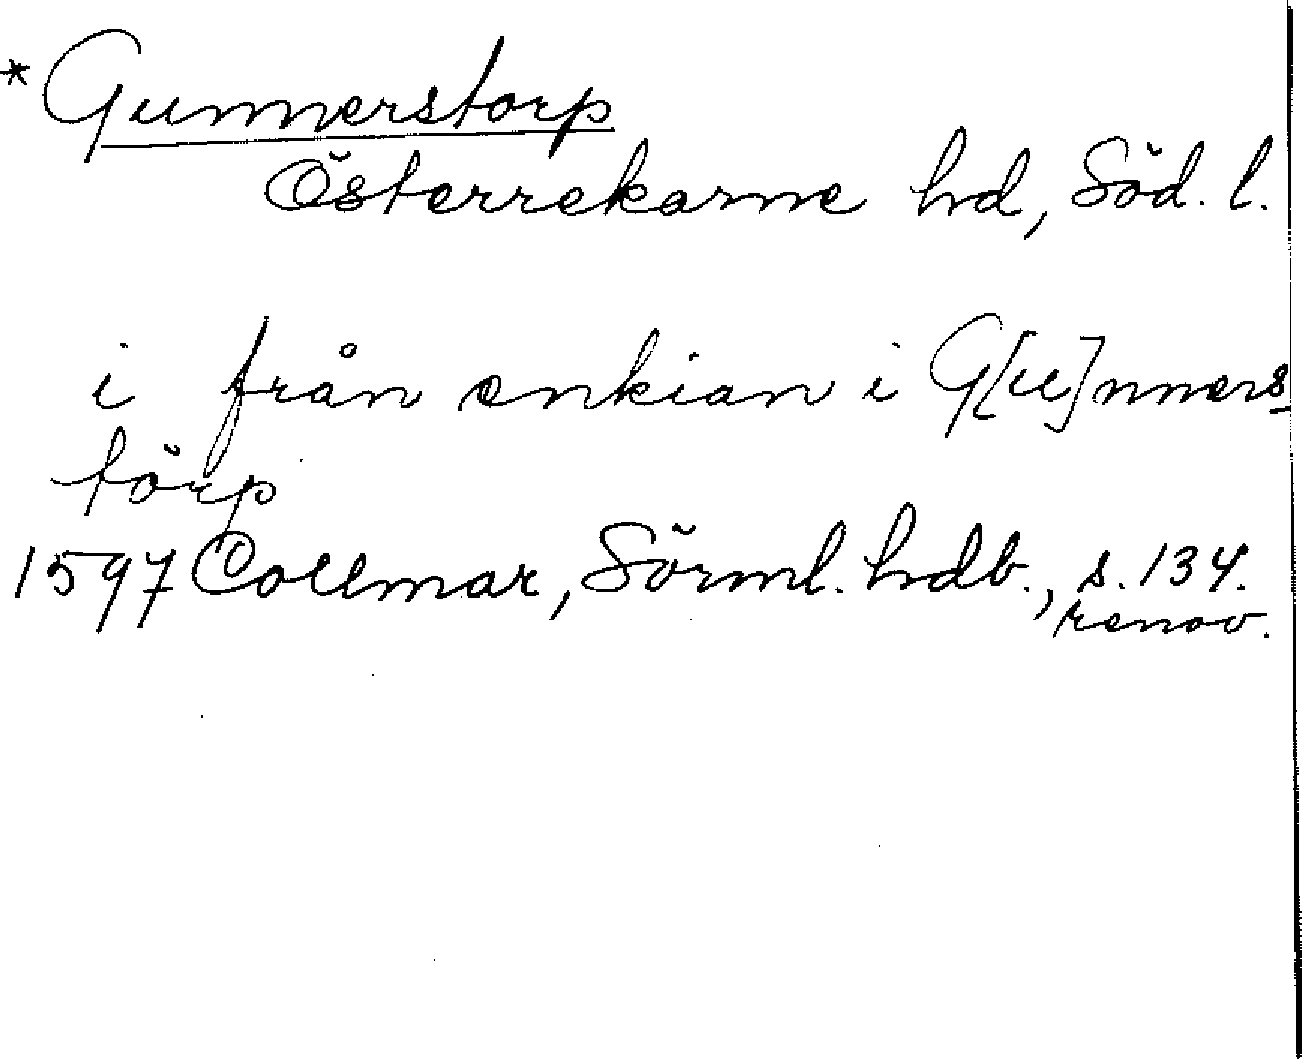 * Gunnerstorp
Österrekarne hd, Söd. l.
i från enkian i G[u]nners-
törp
1597 Collmar, Sörml. hdb., s. 134.
renov.